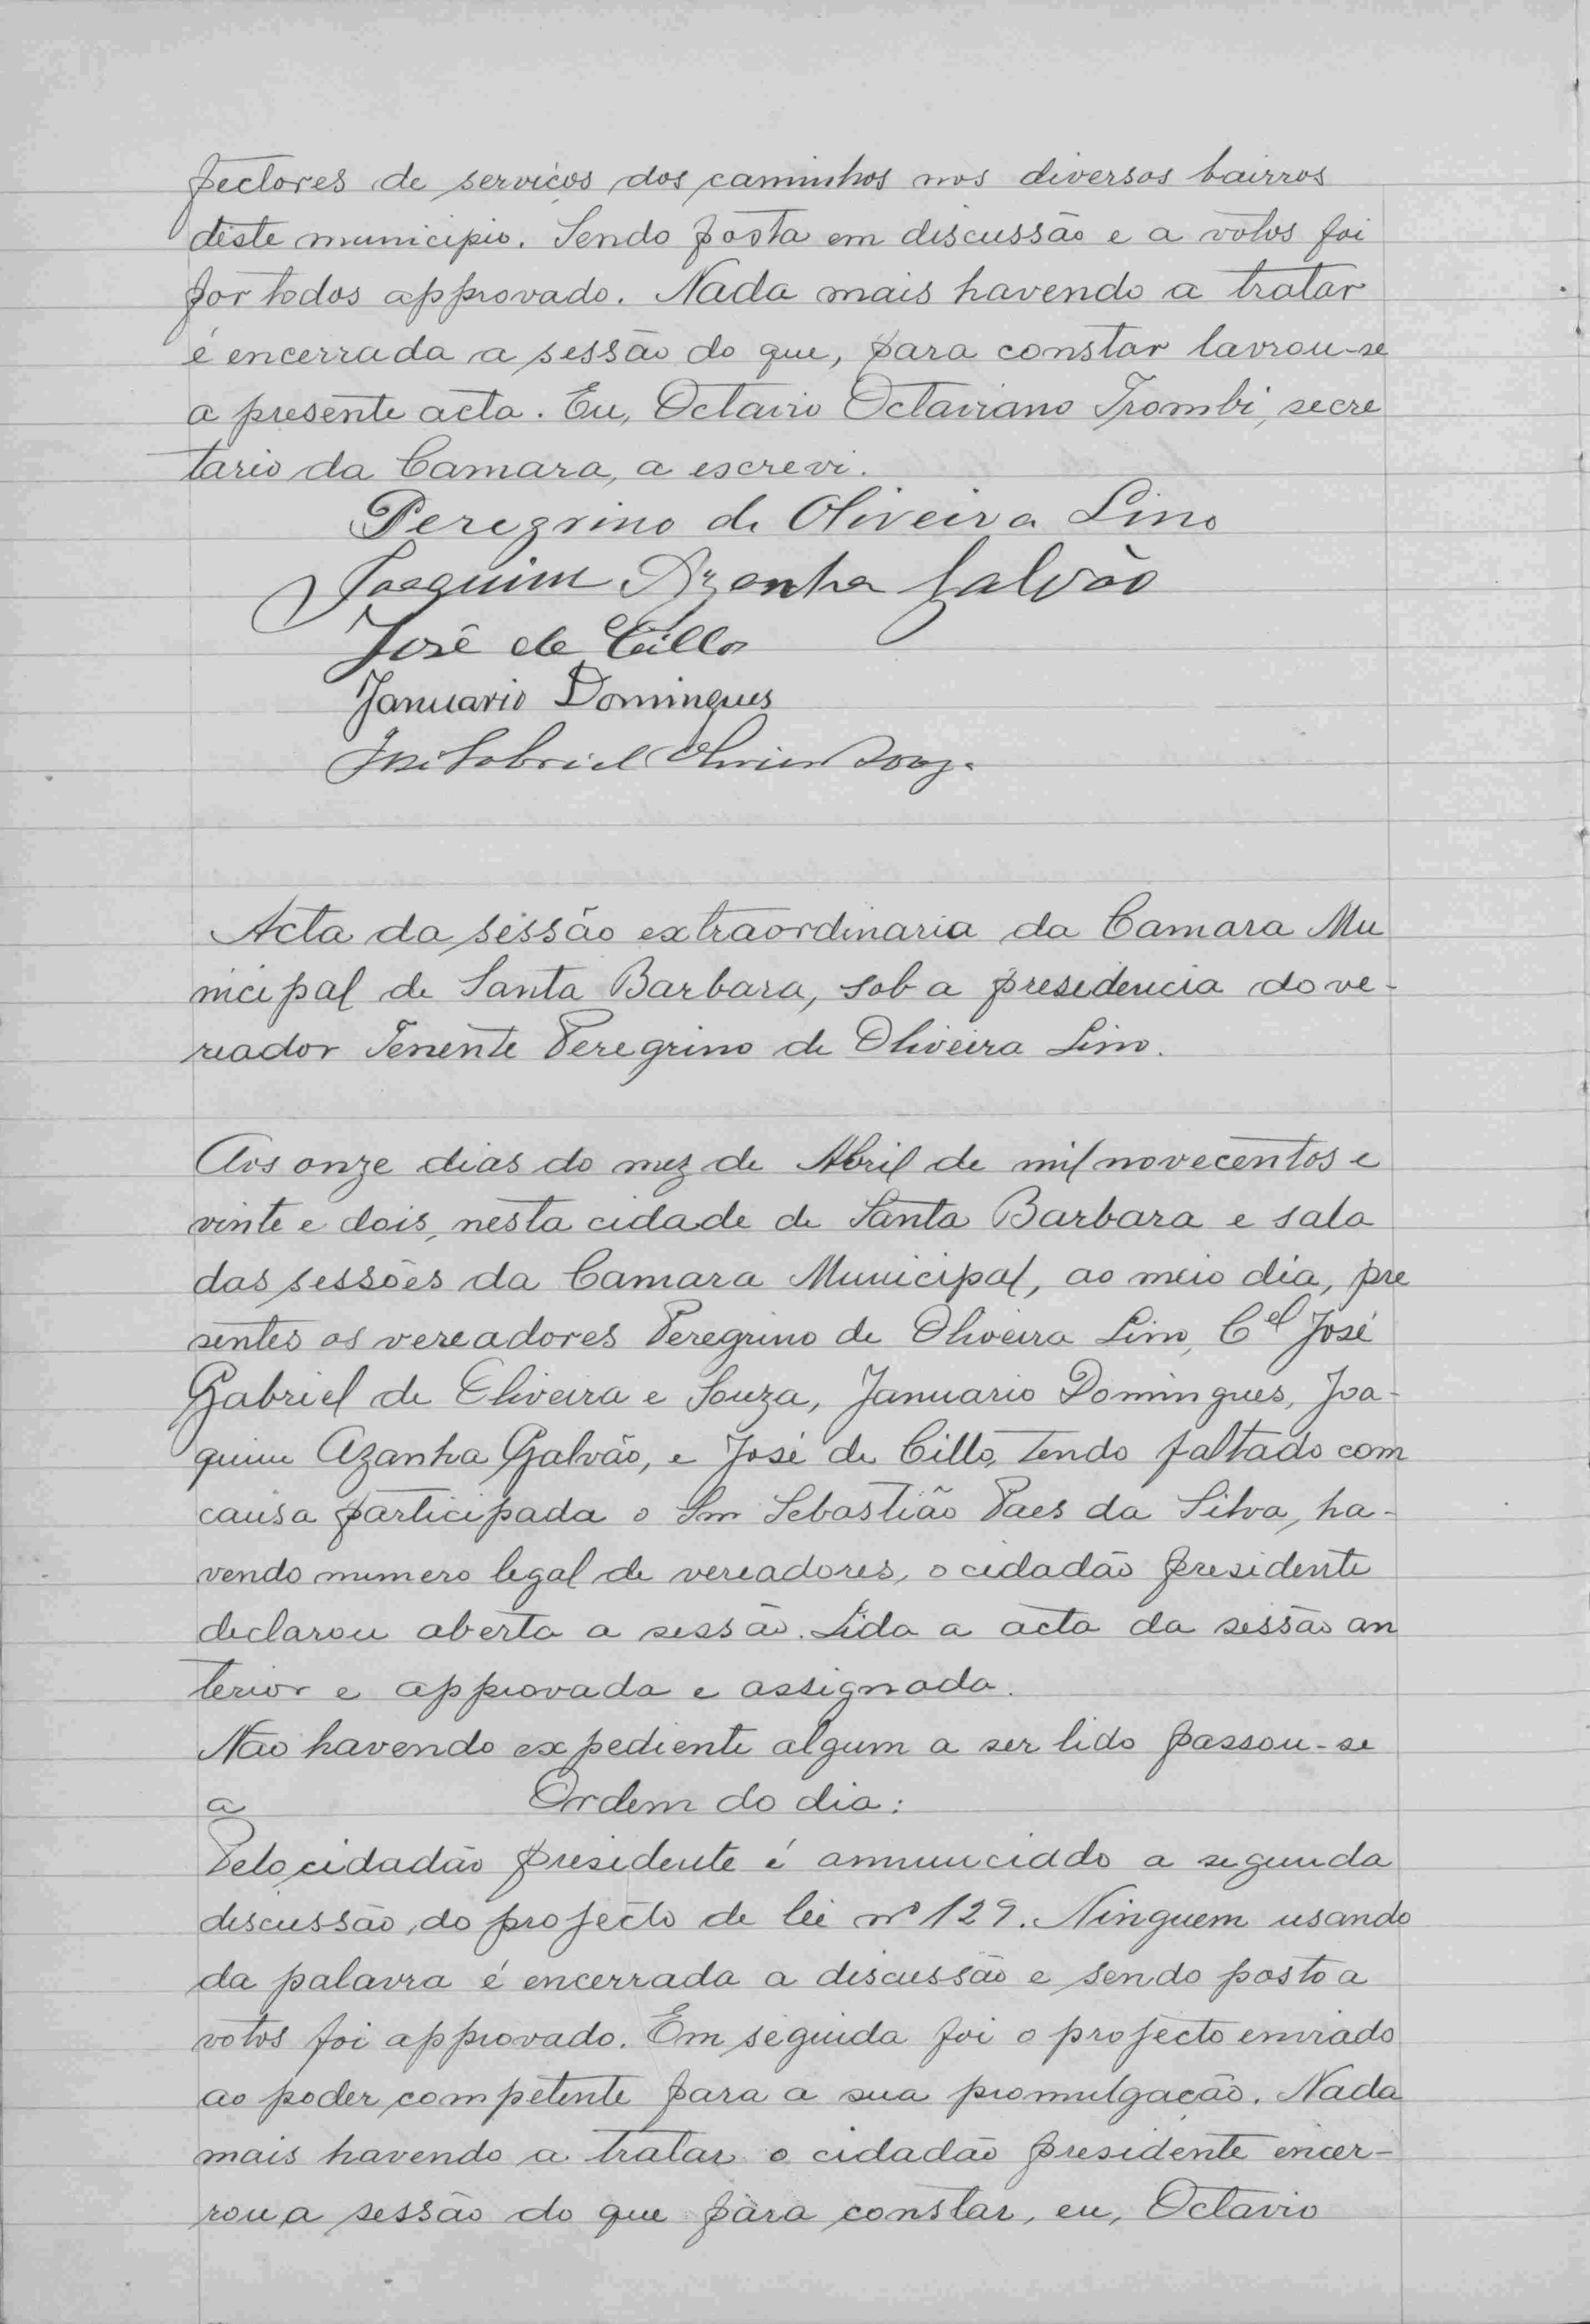 pectores de serviços dos caminhos nos diversos bairros
deste municipio. Sendo posta em discussão e a votos foi
por todos approvado. Nada mais havendo a tratar
é encerrada a sessão do que, para constar lavrou-se
a presente acta. Eu, Octavio Octaviano Trombi, secre
tario da Camara, a escrevi.
Peregrino de Oliveira Lino
Joaquim Azanha Galvão
José de Cillo
Januario Domingues
José Gabriel Oliveira Souza
Acta da sessão extraordinaria da Camara Mu
nicipal de Santa Barbara, sob a presidencia do ve-
reador Tenente Peregrino de Oliveira Lino.
Aos onze dias do mez de Abril de mil novecentos e
vinte e dois, nesta cidade de Santa Barbara e sala
das sessões da Camara Municipal, ao meio dia, pre
sentes os vereadores Peregrino de Oliveira Lino, Cel José
Gabriel de Oliveira e Souza, Januario Domingues, Joa-
quim Azanha Galvão, e José de Cillo, tendo faltado com
causa participada o Snr Sebastião Paes da Silva, ha-
vendo numero legal de vereadores, o cidadão presidente
declarou aberta a sessão. Lida a acta da sessão an
terior e approvada e assignada.
Não havendo expediente algum a ser lido passou-se
a Ordem do dia:
Pelo cidadão presidente é annunciado a segunda
discussão, do projecto de lei nº 129. Ninguem usando
da palavra é encerrada a discussão e sendo posto a
votos foi approvado. Em seguida foi o projecto enviado
ao poder competente para a sua promulgação. Nada
mais havendo a tratar o cidadão presidente encer-
rou a sessão do que para constar, eu, Octavio